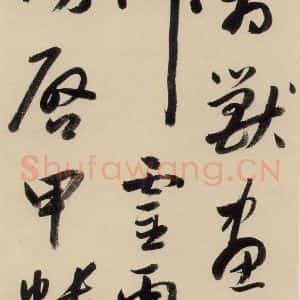 禽獸畫
靈
啓甲帳
Shufawang.CN